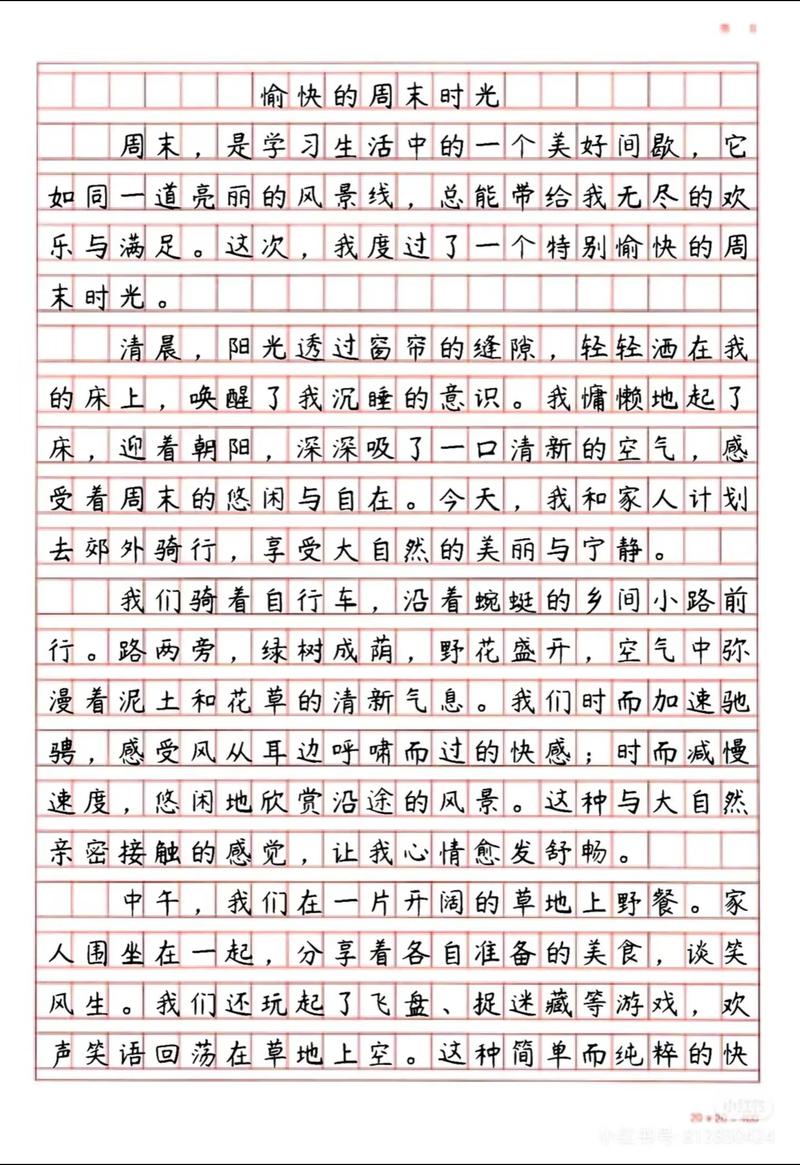 愉快的周末时光
周末，是学习生活中的一个美好间歇，它
如同一道亮丽的风景线，总能带给我无尽的欢
乐与满足。这次，我度过了一个特别愉快的周
末时光。
清晨，阳光透过窗帘的缝隙，轻轻洒在我
的床上，唤醒了我沉睡的意识。我慵懒地起了
床，迎着朝阳，深深吸了一口清新的空气，感
受着周末的悠闲与自在。今天，我和家人计划
去郊外骑行，享受大自然的美丽与宁静。
我们骑着自行车，沿着蜿蜒的乡间小路前
行。路两旁，绿树成荫，野花盛开，空气中弥
漫着泥土和花草的清新气息。我们时而加速驰
骋，感受风从耳边呼啸而过的快感；时而减慢
速度，悠闲地欣赏沿途的风景。这种与大自然
亲密接触的感觉，让我心情愈发舒畅。
中午，我们在一片开阔的草地上野餐。家
人围坐在一起，分享着各自准备的美食，谈笑
风生。我们还玩起了飞盘、捉迷藏等游戏，欢
声笑语回荡在草地上空。这种简单而纯粹的快
小红书
小红书号